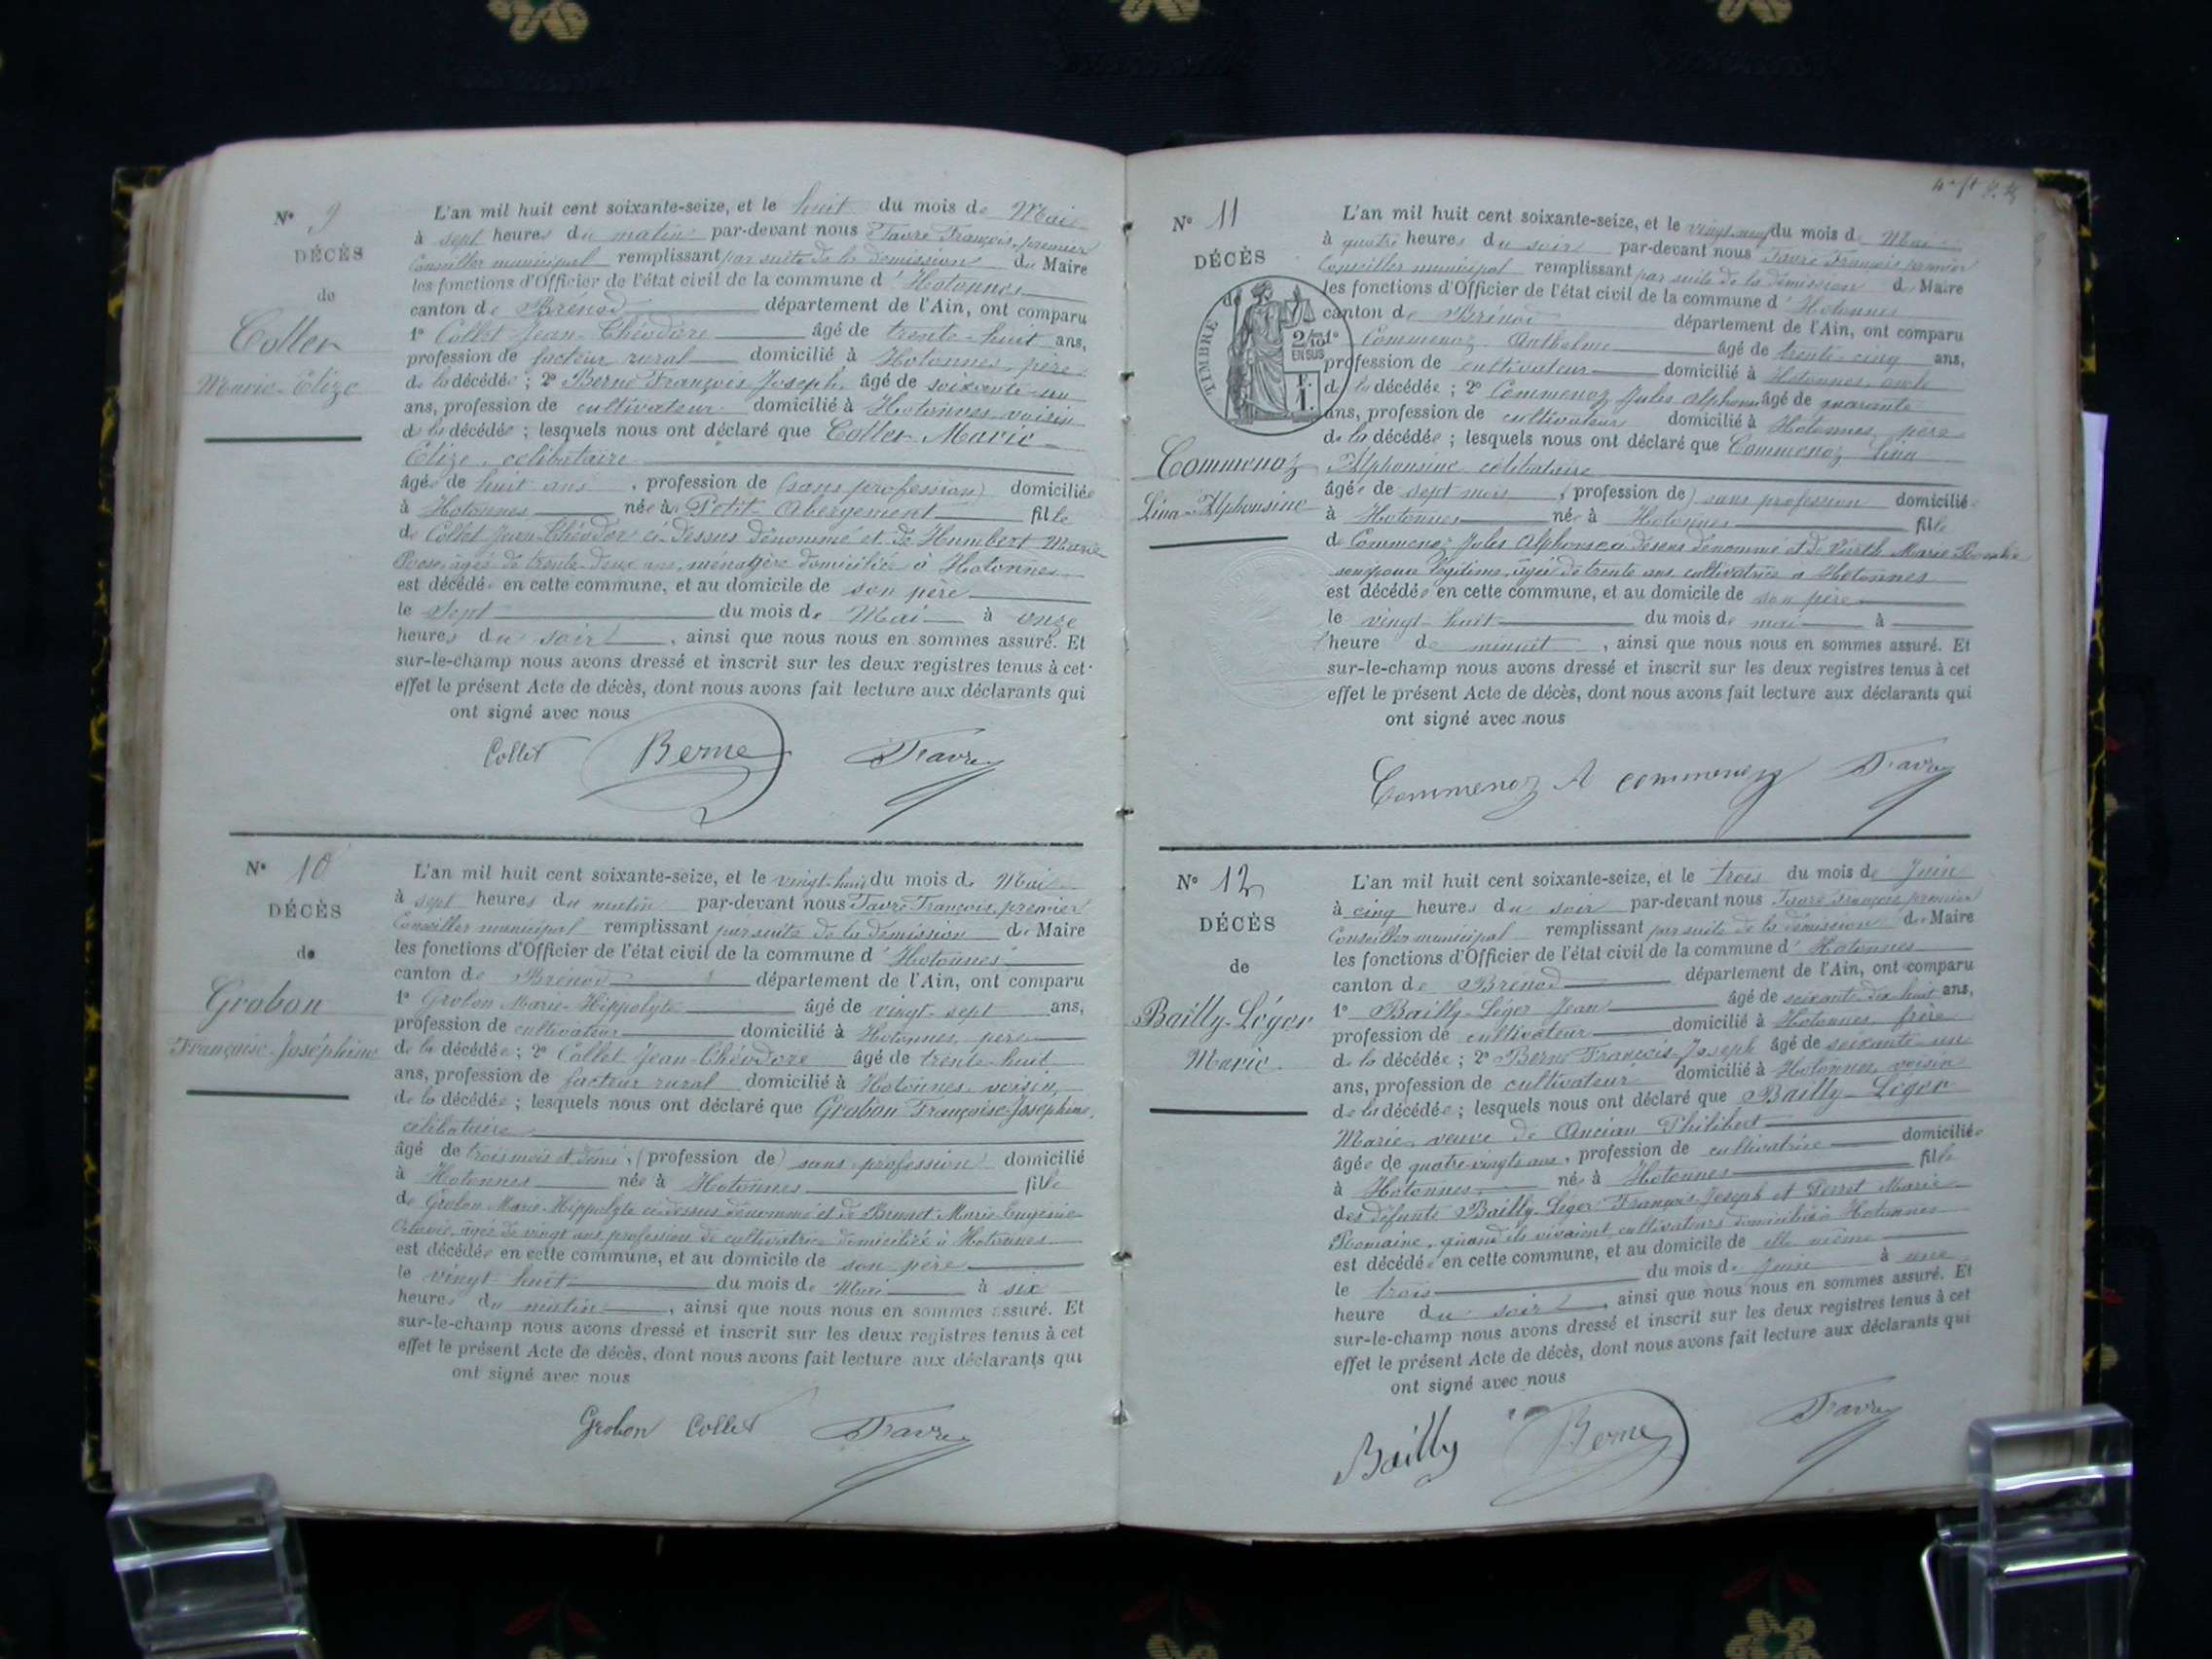 N° 9
DÉCÈS
de
Collet
Marie-Elize
L'an mil huit cent soixante-seize, et le huit du mois de Mai
à sept heures du matin par-devant nous Favre François, premier
Conseiller municipal remplissant par suite de la démission du Maire
les fonctions d'Officier de l'état civil de la commune d'Hotonnes
canton de Brénod département de l'Ain, ont comparu
1° Collet Jean-Théodore âgé de trente-huit ans,
profession de facteur rural domicilié à Hotonnes, père
de la décédée ; 2° Berne François Joseph, âgé de soixante-un
ans, profession de cultivateur domicilié à Hotonnes voisin
de la décédée ; lesquels nous ont déclaré que Collet Marie-
Elize, célibataire
âgée de huit ans, profession de (sans profession) domiciliée
à Hotonnes née à Petit-Abergement fille
de Collet Jean-Théodore ci-dessus dénommé et de Humbert Marie
âgée de trente-deux ans, ménagère domiciliée à Hotonnes
est décédée en cette commune, et au domicile de son père
le sept du mois de Mai à onze
heures du soir, ainsi que nous nous en sommes assuré. Et
sur-le-champ nous avons dressé et inscrit sur les deux registres tenus à cet
effet le présent Acte de décès, dont nous avons fait lecture aux déclarants qui
ont signé avec nous
Collet Berne Favre
N° 10
DÉCÈS
de
Grobon
Françoise-Joséphine
L'an mil huit cent soixante-seize, et le vingt-huit du mois de Mai
à sept heures du matin par-devant nous Favre François, premier
Conseiller municipal remplissant par suite de la démission du Maire
les fonctions d'Officier de l'état civil de la commune d'Hotonnes
canton de Brénod département de l'Ain, ont comparu
1° Grobon Marie-Hippolyte âgé de vingt-sept ans,
profession de cultivateur domicilié à Hotonnes, père
de la décédée ; 2° Collet Jean-Théodore âgé de trente-huit
ans, profession de facteur rural domicilié à Hotonnes voisin,
de la décédée ; lesquels nous ont déclaré que Grobon Françoise-Joséphine,
célibataire
âgé de trois mois et demi, (profession de) sans profession domicilié
à Hotonnes née à Hotonnes fille
de Grobon Marie-Hippolyte ci-dessus dénommé et de Brunet Marie-Eugénie-
Octavie, âgée de vingt ans, profession de cultivatrice domiciliée à Hotonnes
est décédée en cette commune, et au domicile de son père
le vingt-huit du mois de Mai à six
heures du matin, ainsi que nous nous en sommes assuré. Et
sur-le-champ nous avons dressé et inscrit sur les deux registres tenus à cet
effet le présent Acte de décès, dont nous avons fait lecture aux déclarants qui
ont signé avec nous
Grobon Collet Favre
N° 11
DÉCÈS
de
TIMBRE
2/10
EN SUS
F.
1.
Commenoz
Lina-Alphonsine
L'an mil huit cent soixante-seize, et le vingt-neuf du mois de Mai
à quatre heures du soir par-devant nous Favre François premier
Conseiller municipal remplissant par suite de la démission du Maire
les fonctions d'Officier de l'état civil de la commune d'Hotonnes
canton de Brénod département de l'Ain, ont comparu
1° Commenoz Anthelme âgé de trente-cinq ans,
profession de cultivateur domicilié à Hotonnes, oncle
de la décédée ; 2° Commenoz Jules Alphonse âgé de quarante
ans, profession de cultivateur domicilié à Hotonnes, père
de la décédée ; lesquels nous ont déclaré que Commenoz Lina
Alphonsine célibataire
âgée de sept mois, (profession de) sans profession domiciliée
à Hotonnes née à Hotonnes fille
de Commenoz Jules Alphonse ci-dessus dénommé et de Marie
légitime, âgée de trente ans, cultivatrice à Hotonnes
est décédée en cette commune, et au domicile de son père
le vingt-huit du mois de mai à
heure de minuit, ainsi que nous nous en sommes assuré. Et
sur-le-champ nous avons dressé et inscrit sur les deux registres tenus à cet
effet le présent Acte de décès, dont nous avons fait lecture aux déclarants qui
ont signé avec nous
Commenoz A commenoz Favre
N° 12
DÉCÈS
de
Bailly-Léger
Marie
L'an mil huit cent soixante-seize, et le trois du mois de Juin
à cinq heures du soir par-devant nous Favre François premier
Conseiller municipal remplissant par suite de la démission du Maire
les fonctions d'Officier de l'état civil de la commune d'Hotonnes
canton de Brénod département de l'Ain, ont comparu
1° Bailly-Léger Jean âgé de soixante-dix-huit ans,
profession de cultivateur domicilié à Hotonnes, frère
de la décédée ; 2° Berne François-Joseph âgé de soixante-un
ans, profession de cultivateur domicilié à Hotonnes, voisin
de la décédée ; lesquels nous ont déclaré que Bailly-Léger
Marie, veuve de Ancian Philibert
âgée de quatre-vingts ans, profession de cultivatrice domiciliée
à Hotonnes, née à Hotonnes fille
des défunts Bailly-Léger François Joseph et Perret Marie
Romaine, quand ils vivaient, cultivateurs domiciliés à Hotonnes
est décédée en cette commune, et au domicile de elle même
le trois du mois de Juin à une
heure du soir, ainsi que nous nous en sommes assuré. Et
sur-le-champ nous avons dressé et inscrit sur les deux registres tenus à cet
effet le présent Acte de décès, dont nous avons fait lecture aux déclarants qui
ont signé avec nous
Bailly Berne Favre